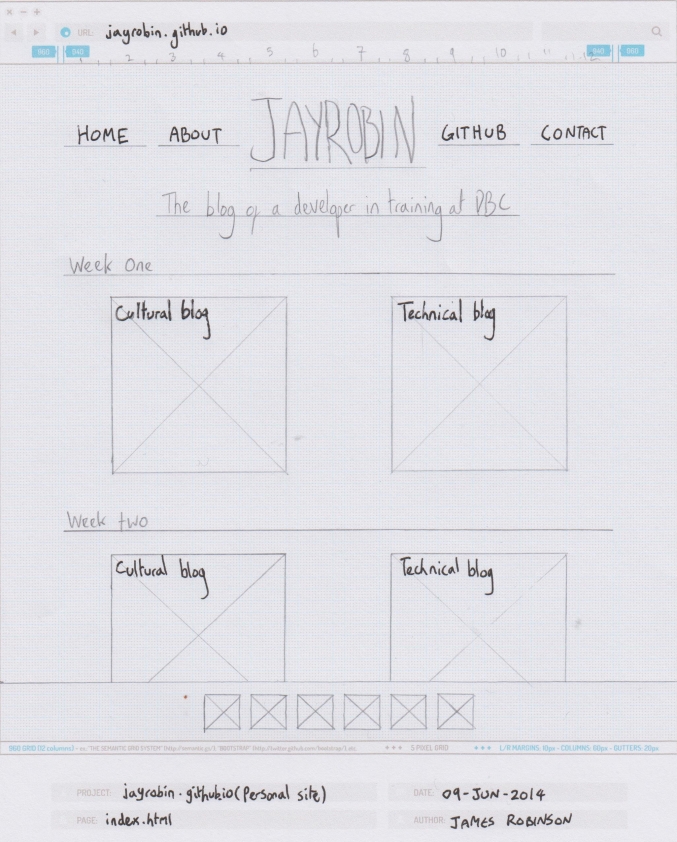 URL: jayrobin.github.io
960 940 940 960
1 2 3 4 5 6 7 8 9 10 11 12
HOME ABOUT JAYROBIN GITHUB CONTACT
The blog of a developer in training at DBC
Week One
Cultural blog Technical blog
Week two
Cultural blog Technical blog
960 GRID (12 columns) - ex: "THE SEMANTIC GRID SYSTEM" "BOOTSTRAP" 5 PIXEL GRID L/R MARGINS: 10px - COLUMNS: 60px - GUTTERS: 20px
PROJECT: jayrobin.github.io (Personal site) DATE: 09-JUN-2014
PAGE: index.html AUTHOR: JAMES ROBINSON